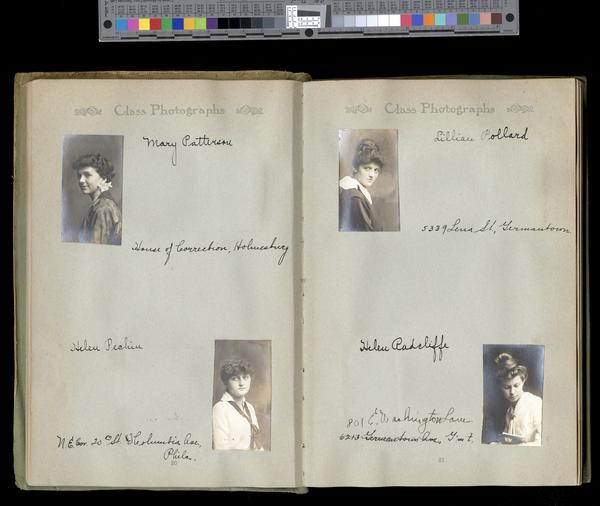 Class Photographs
Mary Patterson
House of Correction, Holmesburg
Helen Pechin
N.E. Cor. 20th St. & Columbia Ave,
Phila.
20
Class Photographs
Lillian Pollard
5339 Lena St, Germantown
Helen Radcliffe
801 E. Washington Lane
6213 Germantown Ave, Gmt.
21